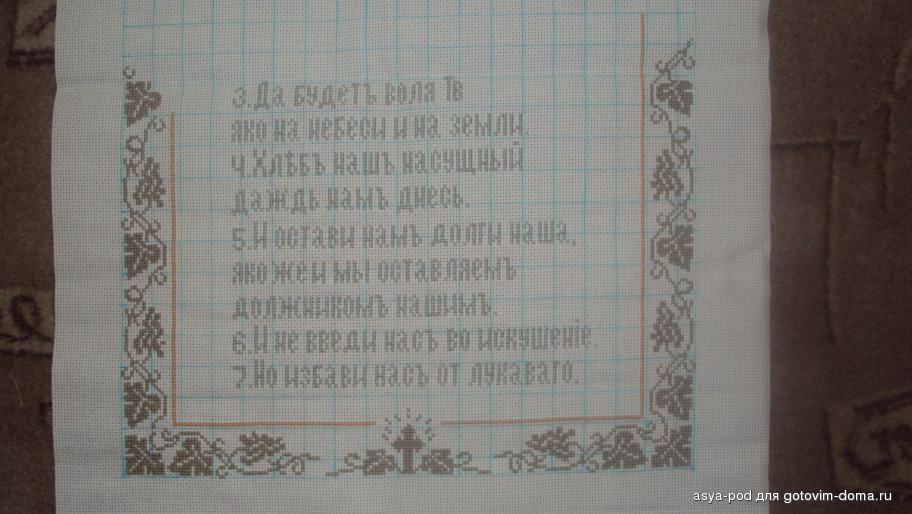 3.Да будетъ воля Тв
яко на небеси и на земли.
4.Хлѣбъ нашъ насущный
даждь намъ днесь.
5.И остави намъ долги наша,
яко же и мы оставляемъ
должникомъ нашимъ.
6.И не введи насъ во искушеніе.
7.Но избави насъ от лукаваго.
asya-pod для gotovim-doma.ru